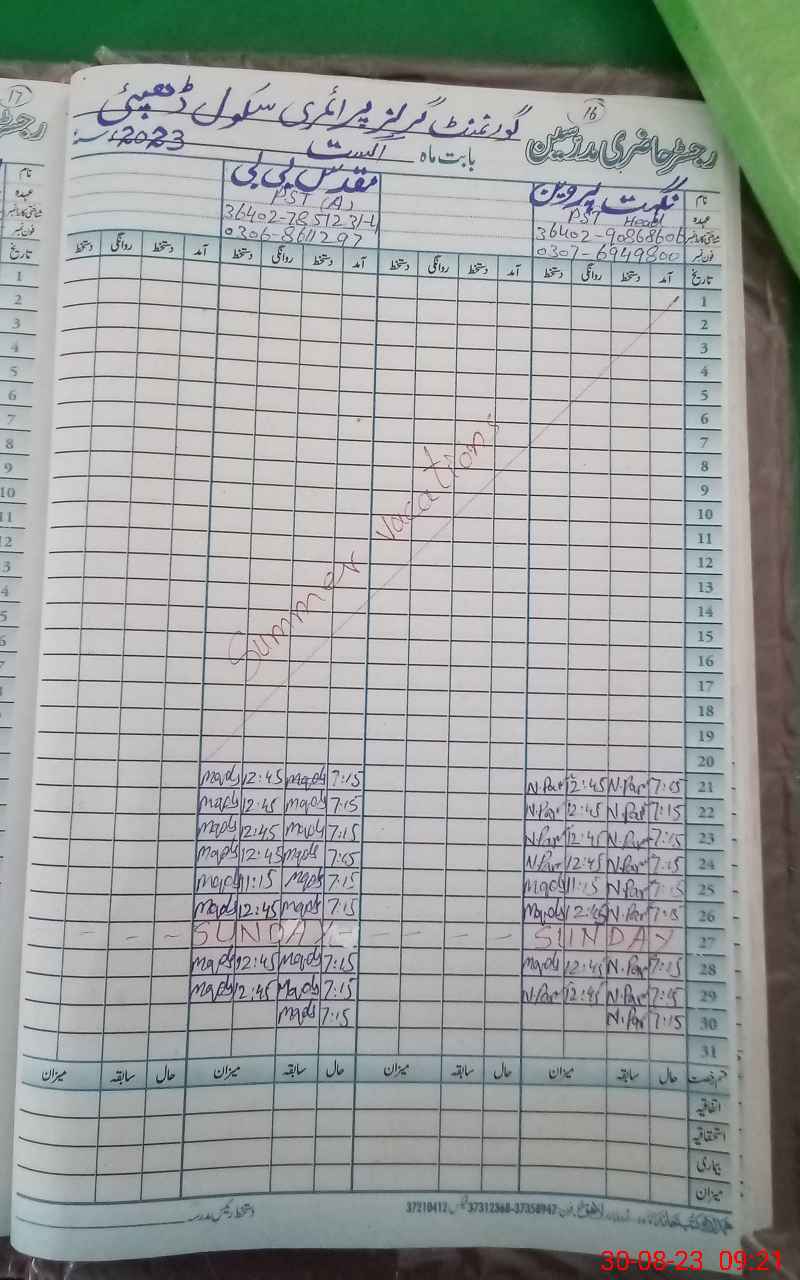 16
17
رجسٹر حاضری مدرسین
گورنمنٹ گرلز پرائمری سکول ڈھپئی
بابت ماہ اگست 2023
نام نگہت پروین مقدس بی بی
عہدہ PST Head PST (A)
شناختی کارڈ نمبر 36402-90868606 36402-7851231-4
فون نمبر 0307-6949800 0306-8611297
تاریخ آمد دستخط روانگی دستخط آمد دستخط روانگی دستخط آمد دستخط روانگی دستخط آمد دستخط روانگی دستخط
1
2
3
4
5
6
7
8
9
10
11
12
13
14
15
16
17
18
19
20
Summer vacations
21 7:15 N.Par 12:45 N.Par 7:15 Maqds 12:45 Maqds
22 7:15 N.Par 12:45 N.Par 7:15 Maqds 12:45 Maqds
23 7:15 N.Par 12:45 N.Par 7:15 Maqds 12:45 Maqds
24 7:15 N.Par 12:45 N.Par 7:15 Maqds 12:45 Maqds
25 7:15 N.Par 11:15 Maqds 7:15 Maqds 11:15 Maqds
26 7:15 N.Par 12:45 Maqds 7:15 Maqds 12:45 Maqds
27 SUNDAY SUNDAY
28 7:15 N.Par 12:45 Maqds 7:15 Maqds 12:45 Maqds
29 7:15 N.Par 12:45 N.Par 7:15 Maqds 12:45 Maqds
30 7:15 N.Par 7:15 Maqds
31
قسم رخصت حال سابقہ میزان حال سابقہ میزان حال سابقہ میزان حال سابقہ میزان
اتفاقیہ
استحقاقیہ
بیماری
میزان
دستخط رئیس مدرسہ
37358947-37312368 37210412
30-08-23 09:21